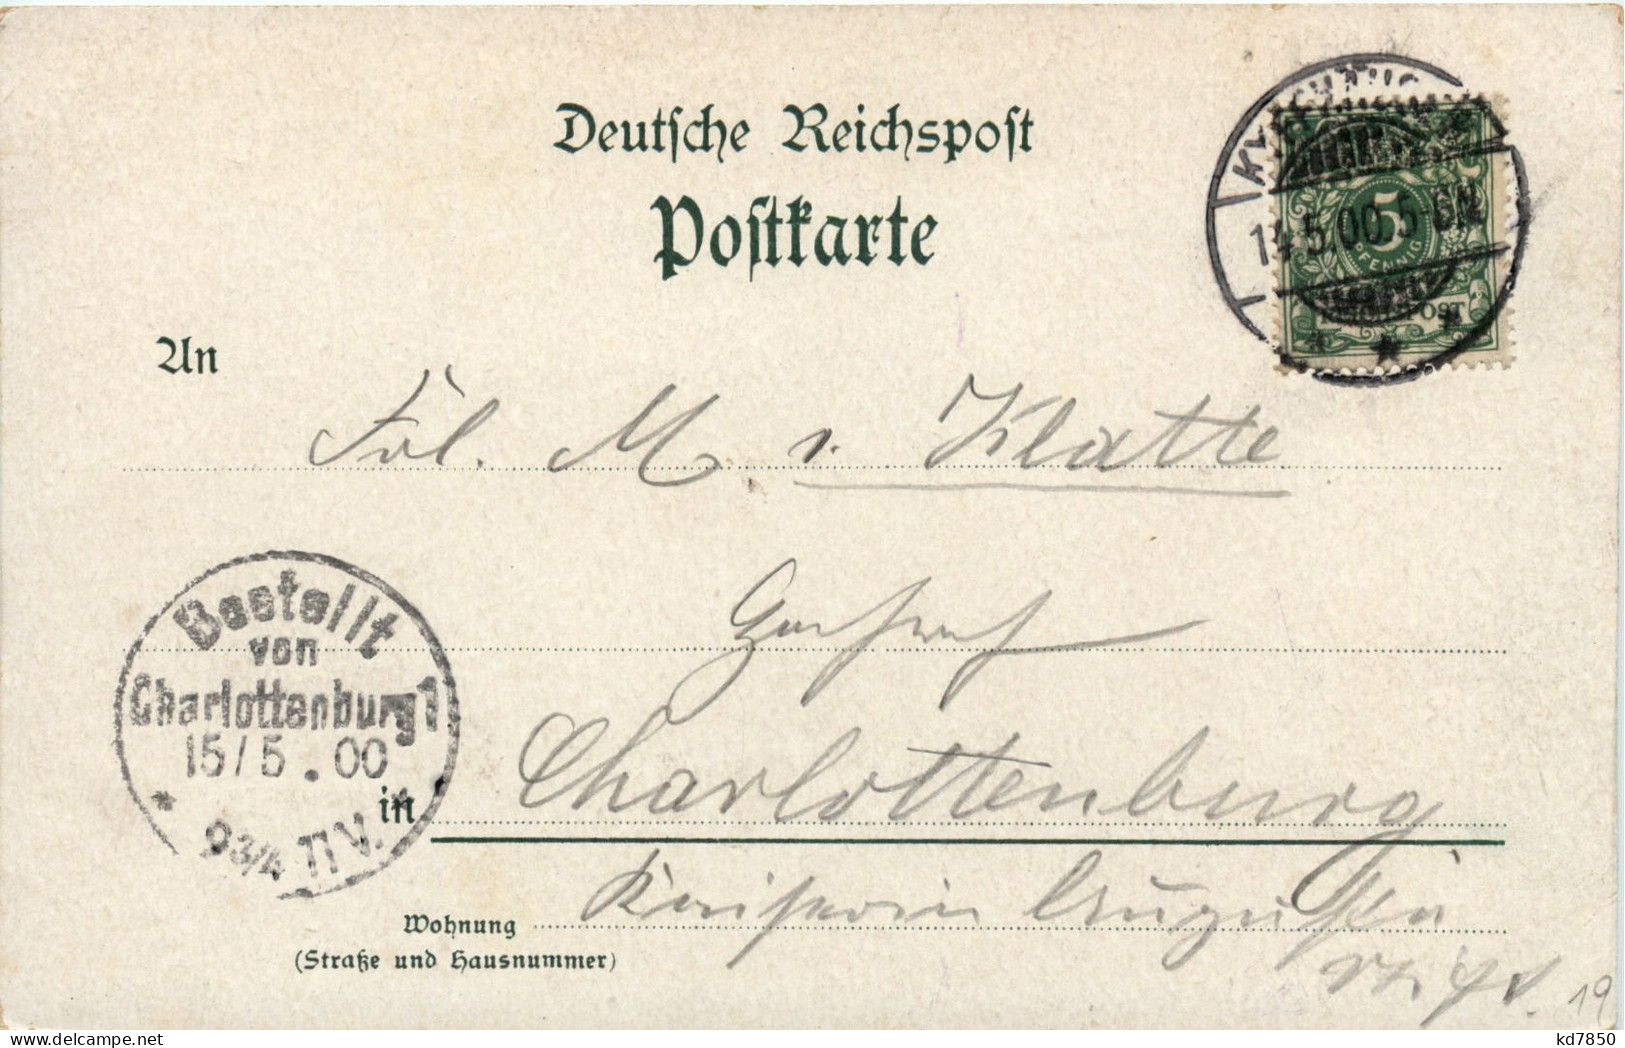 Deutsche Reichspost
Postkarte
14.5.00.5-6N
5
PFENNIG
REICHSPOST
An
Frl. M v. Klatte
Bestellt
von
Charlottenburg 1
15/5.00
9 3/4 - 11 V.
in Charlottenburg
Wohnung Kaiserin Augusta
(Straße und Hausnummer)
19
kd7850